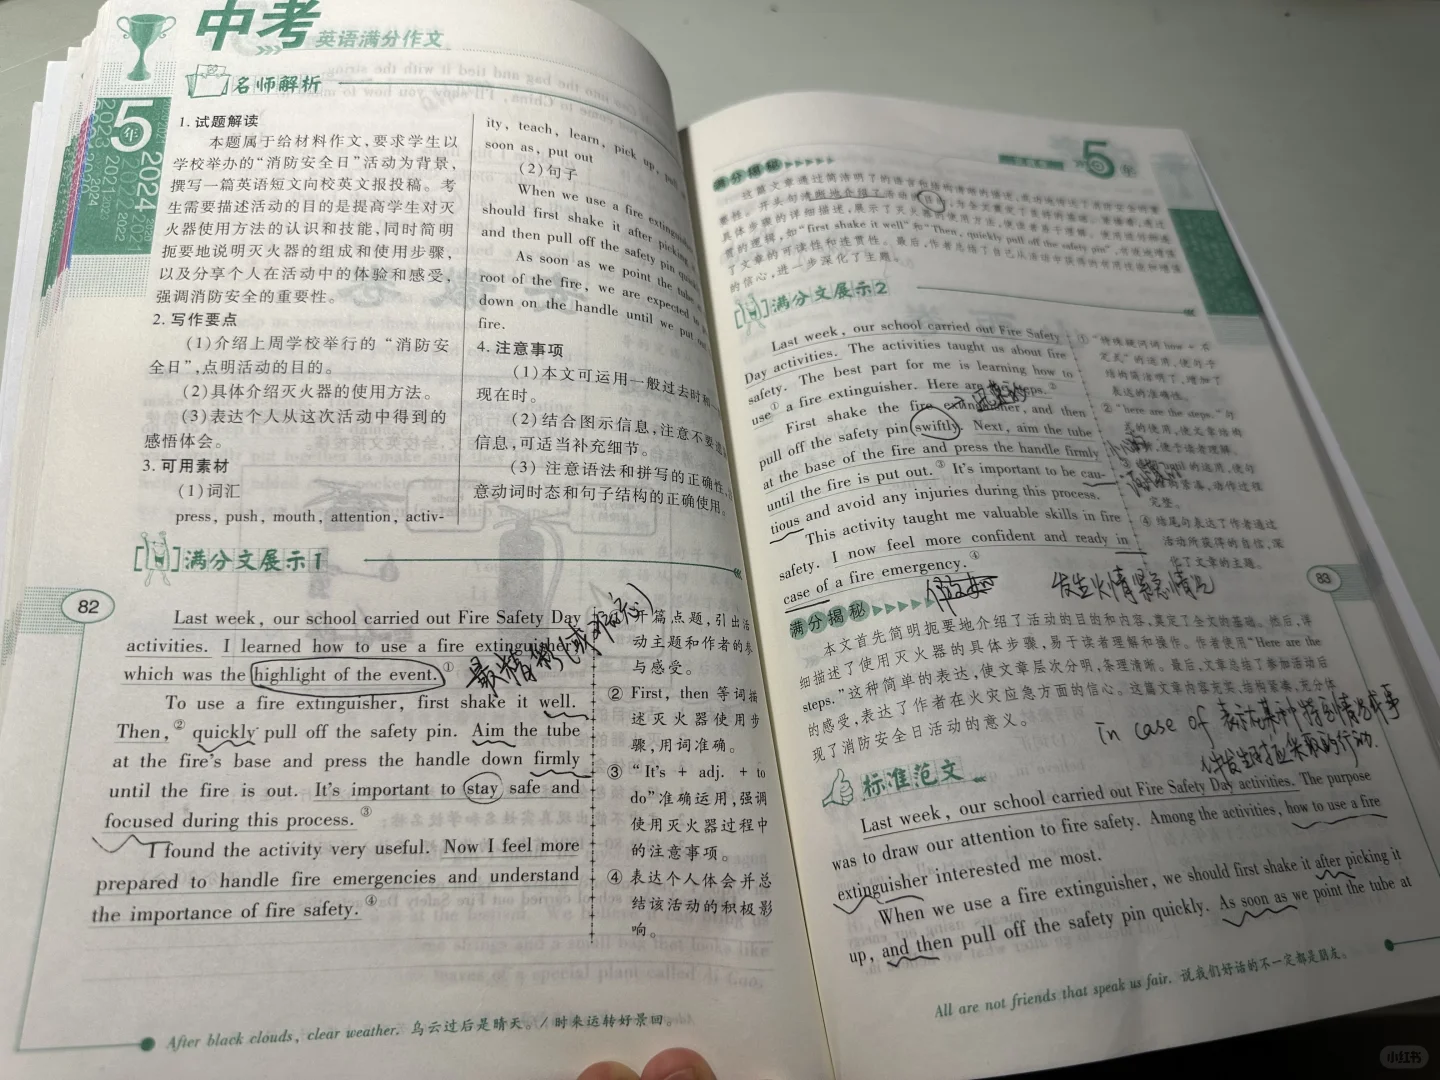 中考 英语满分作文
名师解析
5年
2024
1. 试题解读
本题属于给材料作文,要求学生以
学校举办的“消防安全日”活动为背景,
撰写一篇英语短文向校英文报投稿。考
生需要描述活动的目的是提高学生对灭
火器使用方法的认识和技能,同时简明
扼要地说明灭火器的组成和使用步骤,
以及分享个人在活动中的体验和感受,
强调消防安全的重要性。
2. 写作要点
(1)介绍上周学校举行的“消防安
全日”,点明活动的目的。
(2)具体介绍灭火器的使用方法。
(3)表达个人从这次活动中得到的
感悟体会。
3. 可用素材
(1)词汇
press, push, mouth, attention, activ-
ity, teach, learn, pick up,
soon as, put out
(2)句子
When we use a fire extinguisher
should first shake it after picking
and then pull off the safety pin
As soon as we point the tube
root of the fire, we are expected
down on the handle until we put out
fire.
4. 注意事项
(1)本文可运用一般过去时和一
现在时。
(2)结合图示信息,注意不要
信息,可适当补充细节。
(3)注意语法和拼写的正确性,
意动词时态和句子结构的正确使用。
满分文展示1
82
Last week, our school carried out Fire Safety Day
activities. I learned how to use a fire extinguisher
which was the highlight of the event.①
To use a fire extinguisher, first shake it well.
Then,② quickly pull off the safety pin. Aim the tube
at the fire's base and press the handle down firmly
until the fire is out. It's important to stay safe and
focused during this process.③
I found the activity very useful. Now I feel more
prepared to handle fire emergencies and understand
the importance of fire safety.④
开篇点题,引出活
动主题和作者的参
与感受。
② First, then 等词描
述灭火器使用步
骤,用词准确。
③ “It's + adj. + to
do”准确运用,强调
使用灭火器过程中
的注意事项。
④ 表达个人体会并总
结该活动的积极影
响。
After black clouds, clear weather. 乌云过后是晴天。/ 时来运转好景回。
5年
满分揭秘
这篇文章通过简洁明了的语言和
要性。开头句清晰地介绍了活动
具体步骤的详细描述,展示了灭火器的使用方法,
贯的逻辑,如“first shake it well”和“Then, quickly pull off the safety pin”,
了文章的可读性和连贯性。最后,作者总结了自己从活动中获得的
的信心,进一步深化了主题。
满分文展示2
Last week, our school carried out Fire Safety
Day activities. The activities taught us about fire
safety. The best part for me is learning how to
use① a fire extinguisher. Here are steps.②
First shake the fire extinguisher, and then
pull off the safety pin swiftly. Next, aim the tube
at the base of the fire and press the handle firmly
until the fire is put out.③ It's important to be cau-
tious and avoid any injuries during this process.
This activity taught me valuable skills in fire
safety. I now feel more confident and ready in
case of a fire emergency.④
① “特殊疑问词how + 不
定式”的运用,使句子
结构简洁明了,增加了
表达的准确性。
② “here are the steps.”句
式的使用,使文章结构
,便于读者理解。
的运用,使句
紧凑,动作过程
完整。
④ 结尾句表达了作者通过
活动所获得的自信,深
化了文章的主题。
83
发生火情紧急情况
满分揭秘
本文首先简明扼要地介绍了活动的目的和内容,奠定了全文的基础。然后,详
细描述了使用灭火器的具体步骤,易于读者理解和操作。作者使用“Here are the
steps.”这种简单的表达,使文章层次分明,条理清晰。最后,文章总结了参加活动后
的感受,表达了作者在火灾应急方面的信心。这篇文章内容充实,结构紧凑,充分体
现了消防安全日活动的意义。
in case of 表示在某种特别情况或事
件发生时应采取的行动.
标准范文
Last week, our school carried out Fire Safety Day activities. The purpose
was to draw our attention to fire safety. Among the activities, how to use a fire
extinguisher interested me most.
When we use a fire extinguisher, we should first shake it after picking it
up, and then pull off the safety pin quickly. As soon as we point the tube at
All are not friends that speak us fair. 说我们好话的不一定都是朋友。
小红书